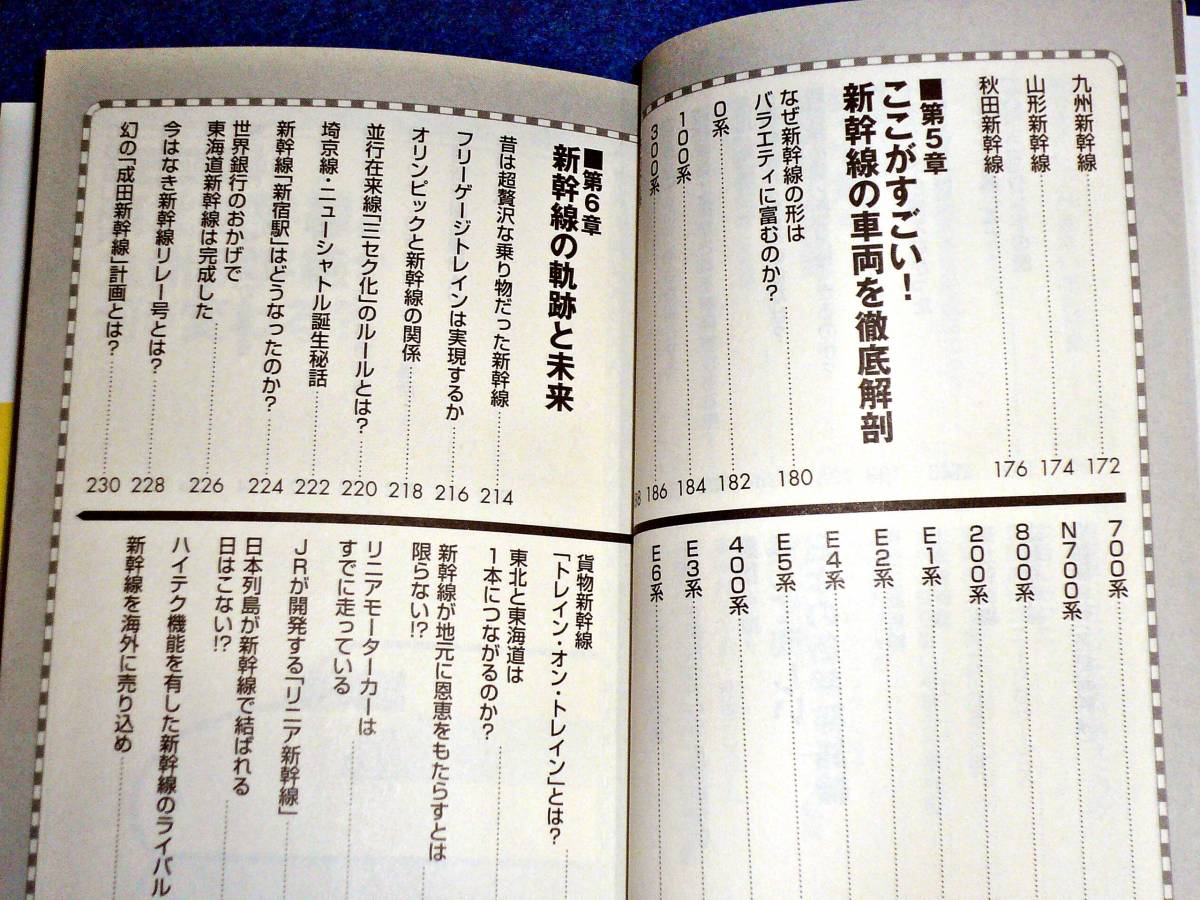 九州新幹線 172
山形新幹線 174
秋田新幹線 176
■第5章
ここがすごい!
新幹線の車両を徹底解剖
なぜ新幹線の形は
バラエティに富むのか? 180
0系 182
100系 184
300系 186
700系
N700系
800系
200系
E1系
E2系
E4系
E5系
400系
E3系
E6系
■第6章
新幹線の軌跡と未来
昔は超贅沢な乗り物だった新幹線 214
フリーゲージトレインは実現するか 216
オリンピックと新幹線の関係 218
並行在来線「三セク化」のルールとは? 220
埼京線・ニューシャトル誕生秘話 222
新幹線「新宿駅」はどうなったのか? 224
世界銀行のおかげで
東海道新幹線は完成した 226
今はなき新幹線リレー号とは? 228
幻の「成田新幹線」計画とは? 230
貨物新幹線
「トレイン・オン・トレイン」とは?
東北と東海道は
1本につながるのか?
新幹線が地元に恩恵をもたらすとは
限らない!?
リニアモーターカーは
すでに走っている
JRが開発する「リニア新幹線」
日本列島が新幹線で結ばれる
日はこない!?
ハイテク機能を有した新幹線のライバル
新幹線を海外に売り込め